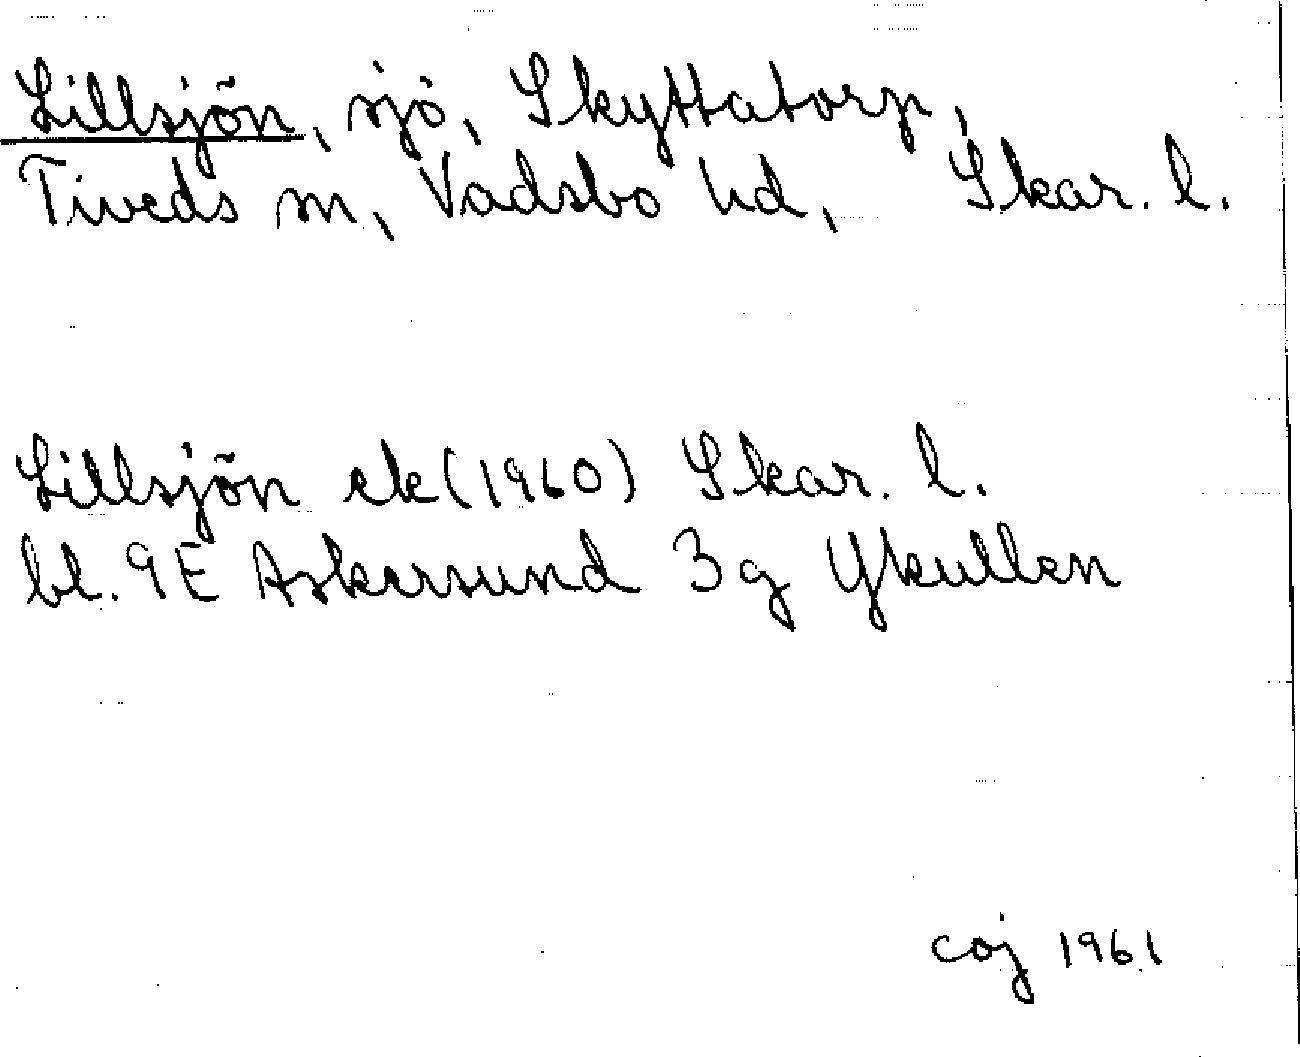 Lillsjön, sjö, Skyttatorp,
Tiveds sn, Vadsbo hd, Skar. l.
Lillsjön ek (1960) Skar. l.
bl. 9E Askersund 3g Ykullen
coj 1961